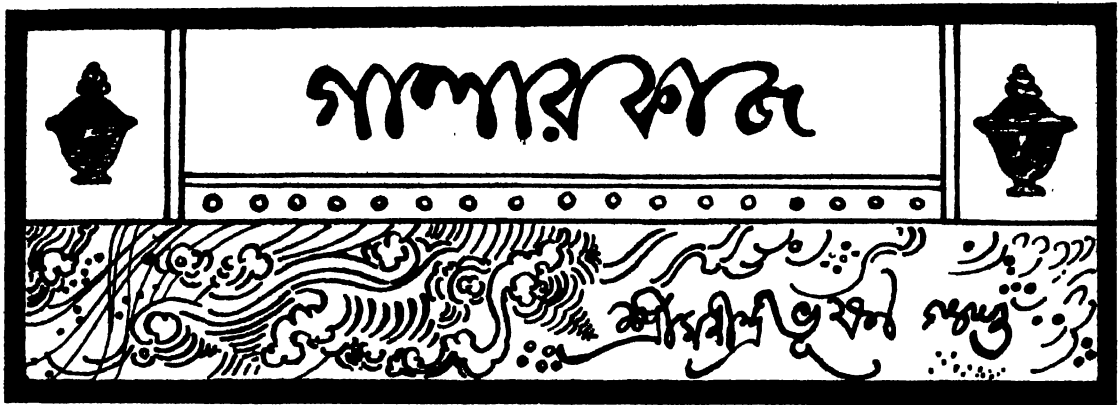 গালার কাজ
শ্রীমণীন্দ্রভূষণ গুপ্ত